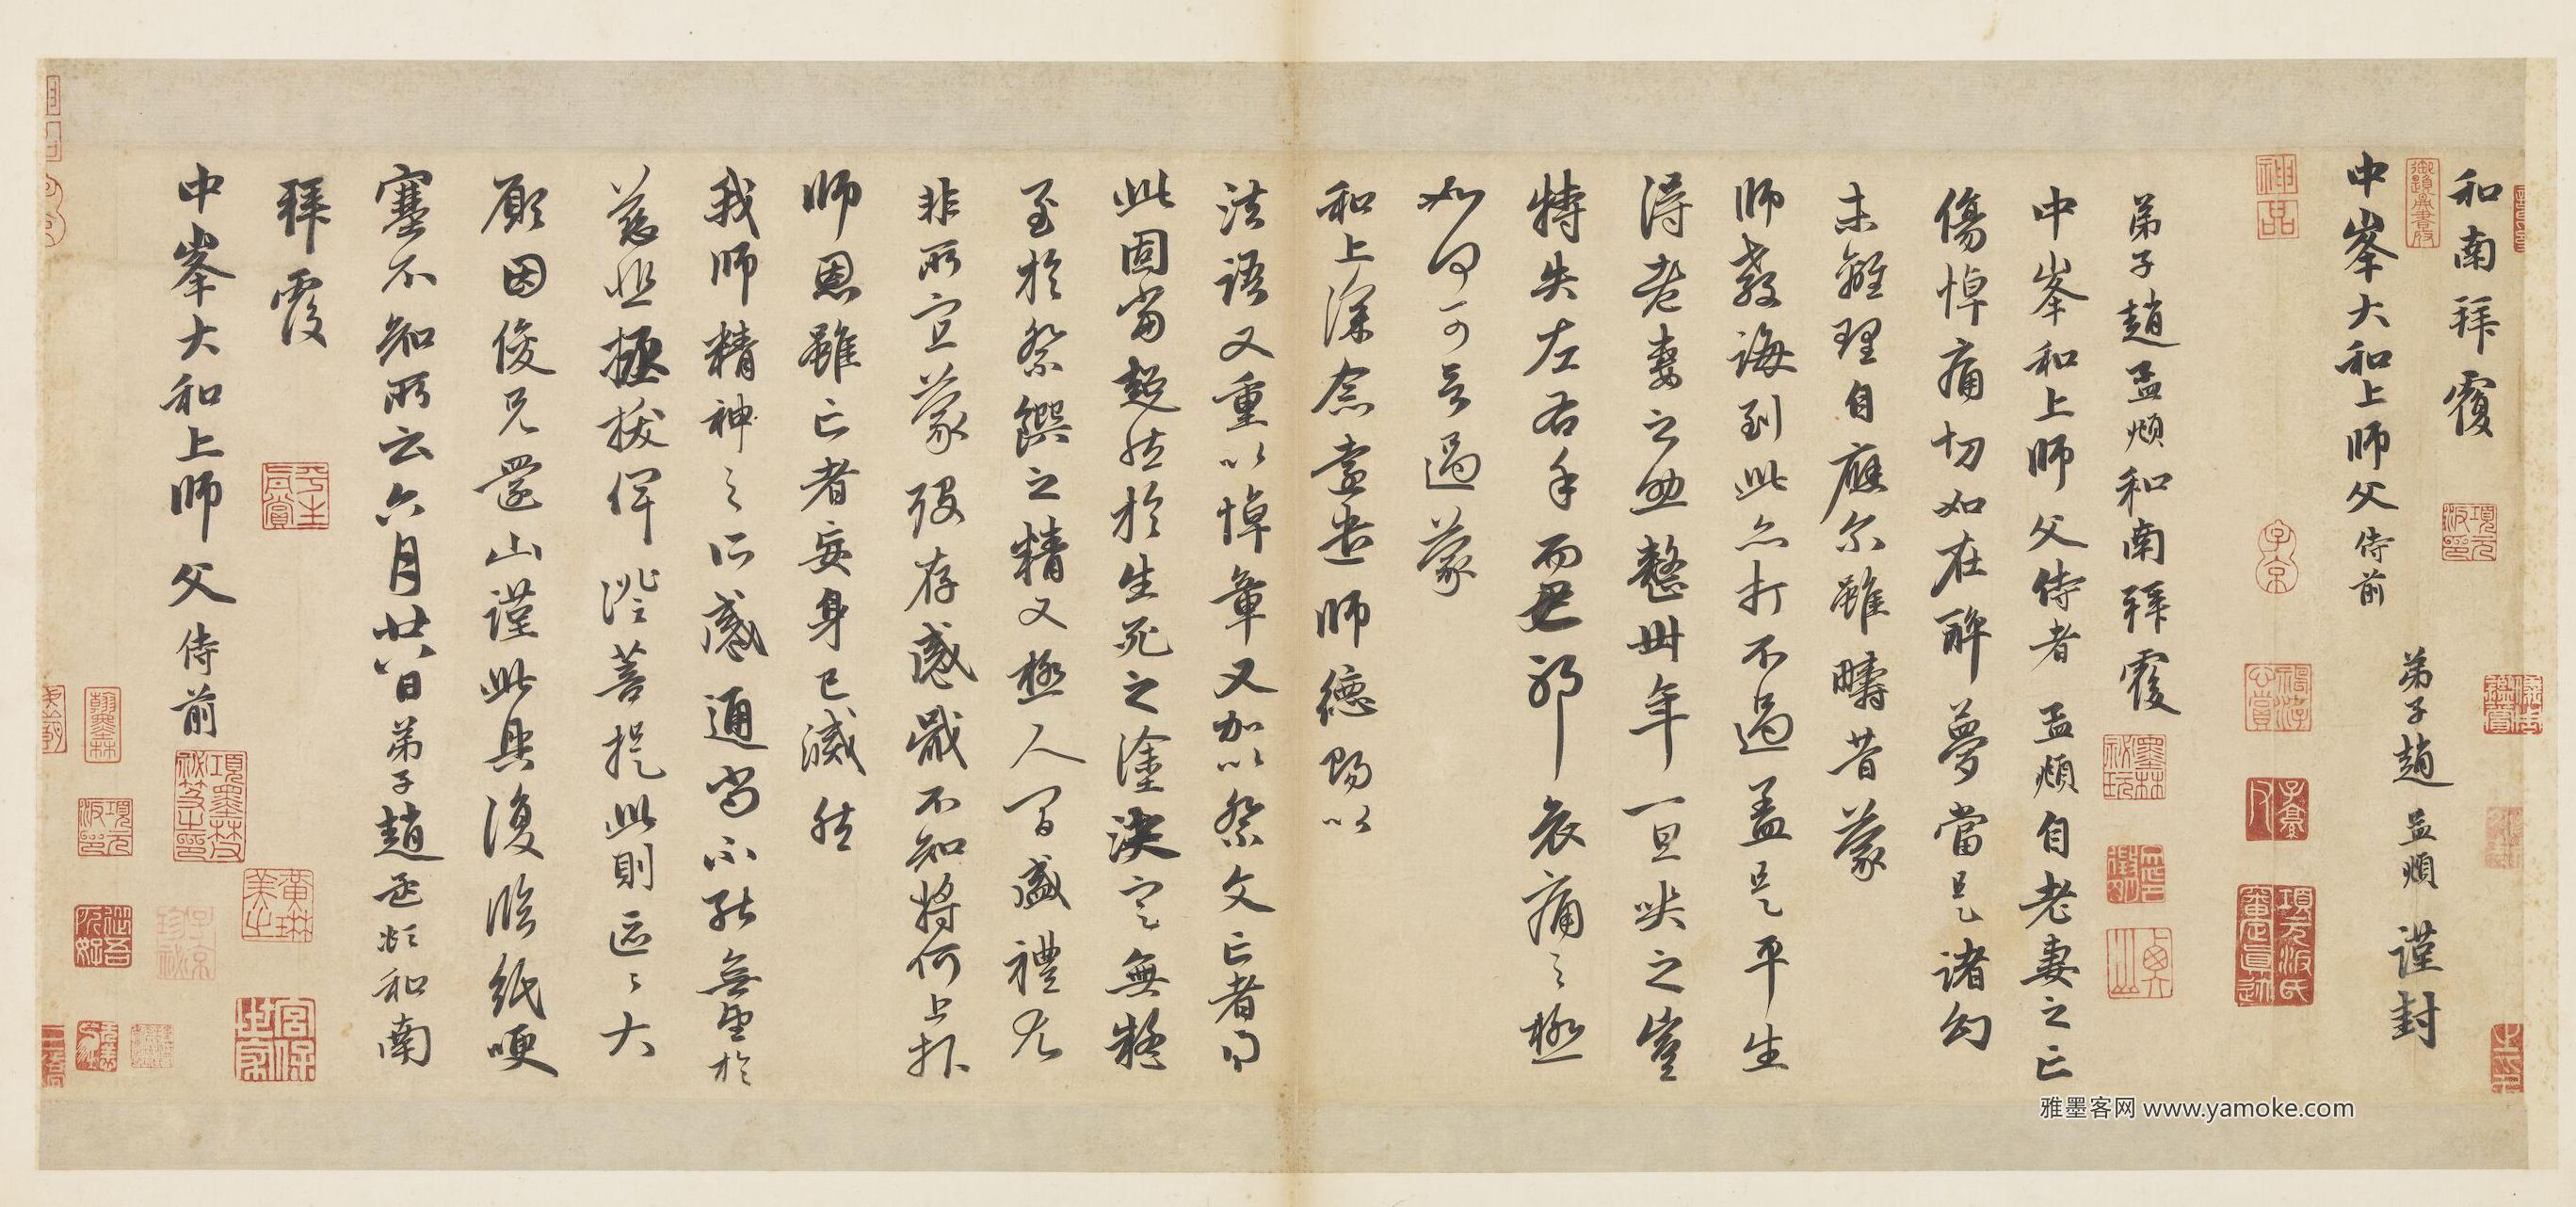 和南拜覆
中峯大和上師父侍前
弟子趙孟頫謹封
弟子趙孟頫和南拜覆
中峯和上師父侍者孟頫自老妻之亡
傷悼痛切如在醉夢當是諸幻
未離理自應尔雖疇昔蒙
師教誨到此亦打不過盖是平生
得老妻之助整卅年一旦哭之豈
特失左右手而已耶哀痛之極
如何可言過蒙
和上深念遠遣師德賜以
法語又重以悼章又加以祭文亡者得
此固當超然於生死之塗決定無疑
至於祭饌之精又極人間盛禮尤
非所宜蒙殁存感戴不知將何上報
師恩雖亡者妄身已滅然
我師精神之所感通尚不能無望於
慈悲拯拔俾證菩提此則區區大
願因俊兄還山謹此具復臨紙哽
塞不知所云六月廿八日弟子趙孟頫和南
拜覆
中峯大和上師父侍前
神品
子京
雅墨客网 www.yamoke.com